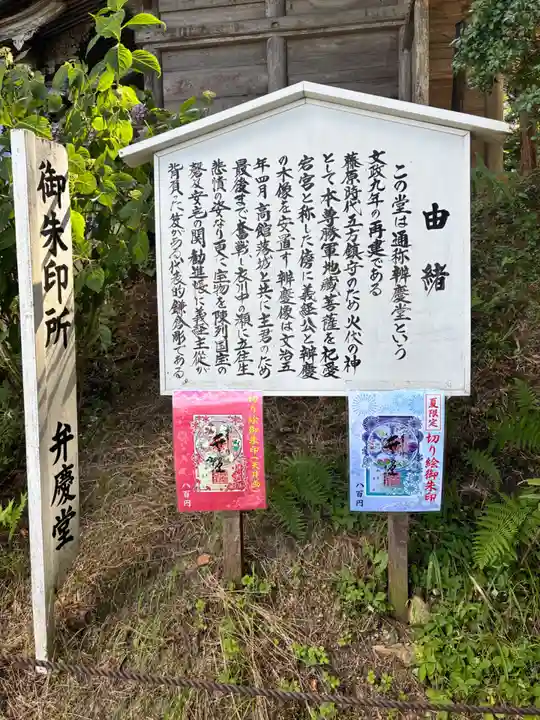 由緒
この堂は通称辨慶堂という
文政九年の再建である
藤原時代五方鎮守のため火伏の神
として本尊勝軍地蔵菩薩を祀愛
宕宮と称した傍に義経公と辨慶
の木像を安置す辨慶像は文治五
年四月高館落城と共に主君のため
最後まで奮戦し衣川中の瀬に立往生
悲憤の姿なり更に宝物を陳列国宝の
磬架安宅の関勧進帳に義経主従が
背負った笈がある代表的鎌倉彫である。
御朱印所 弁慶堂
切り絵御朱印【天井画】
八百円
夏限定
切り絵御朱印
八百円